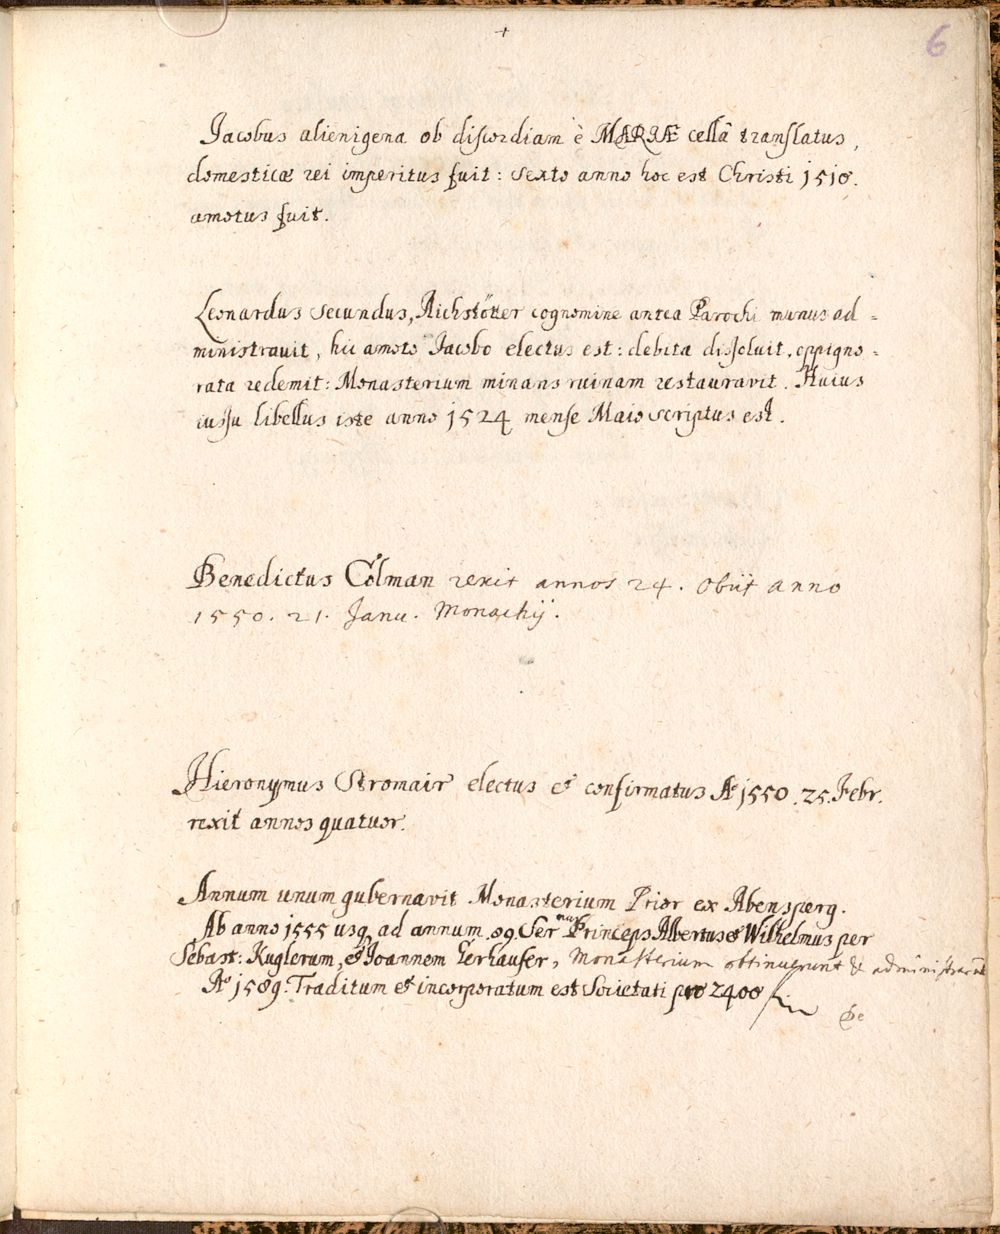 6
Jacobus alienigena ob discordiam è MARIÆ cellâ translatus,
domesticæ rei imperitus fuit: sexto anno hoc est Christi 1510.
amotus fuit.
Leonardus secundus, Aichstötter cognomine antea Parochi munus ad=
ministrauit, hic amoto Jacobo electus est: debita dissoluit, oppigno=
rata redemit: Monasterium minans ruinam restauravit. Huius
iussu libellus iste anno 1524 mense Maio scriptus est.
Benedictus Colman rexit annos 24. obijt anno
1550. 21. Janu. Monachij.
Hieronymus Stromair electus et confirmatus Aº 1550. 25. Febr.
rexit annos quatuor.
Annum unum gubernavit Monasterium Prior ex Abensperg.
Ab anno 1555 usq ad annum 89. Ser mus Princeps Albertus et Wilhelmus per
Sebast: Kuglerum, et Joannem Gerhauser, Monasterium obtinuerunt &
Aº 1589. Traditum et incorporatum est Societati pro 2400
De